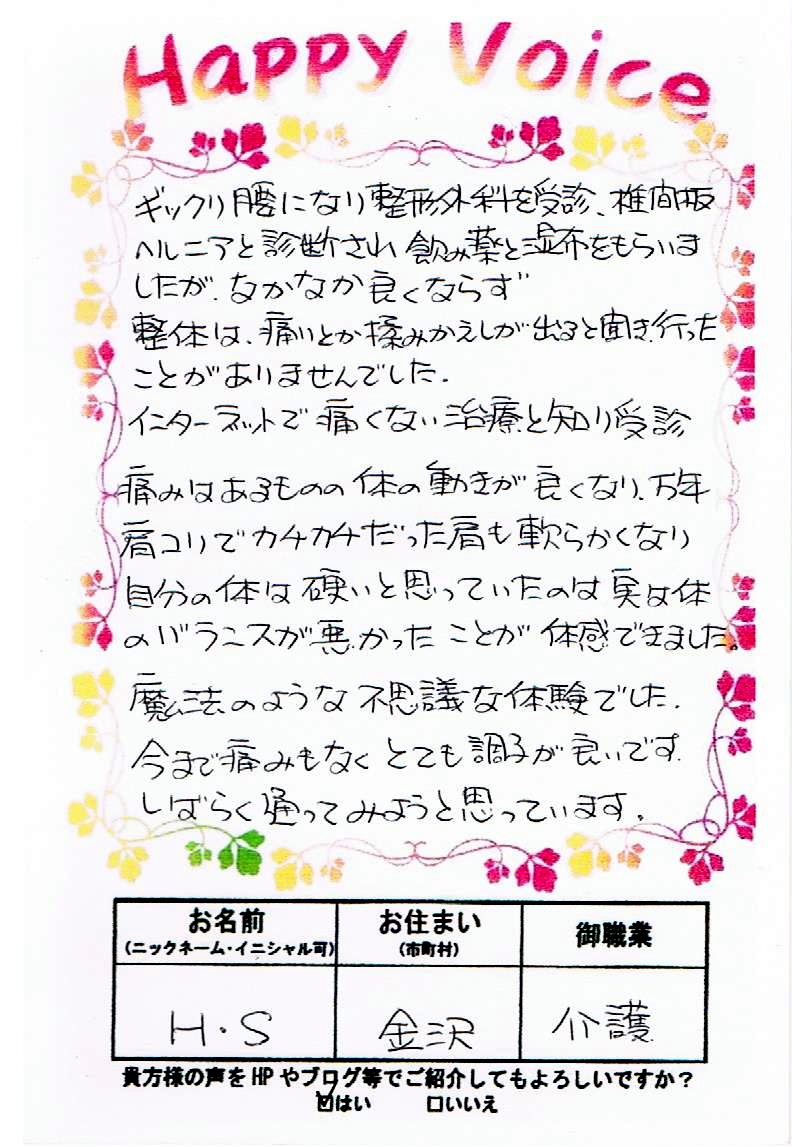 Happy Voice
ギックリ腰になり整形外科を受診、椎間板
ヘルニアと診断され飲み薬と湿布をもらいま
したが、なかなか良くならず
整体は、痛いとか揉みかえしが出ると聞き、行った
ことがありませんでした.
インターネットで痛くない治療と知り受診
痛みはあるものの体の動きが良くなり、万年
肩コリでカチカチだった肩も軟らかくなり
自分の体は硬いと思っていたのは実は体
のバランスが悪かったことが体感できました。
魔法のような不思議な体験でした.
今まで痛みもなくとても調子が良いです.
しばらく通ってみようと思っています.
お名前 お住まい 御職業
(ニックネーム・イニシャル可) (市町村)
H・S 金沢 介護
貴方様の声をHPやブログ等でご紹介してもよろしいですか?
☑はい □いいえ